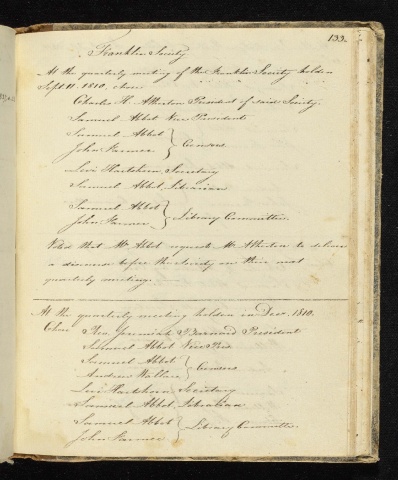 133.
Franklin Society
At the quarterly meeting of the Franklin Society holden
Sept. 11. 1810. chose
Charles H. Atherton President of said Society.
Samuel Abbot Vice President
Samuel Abbot
John Farmer } Censors
Levi Hartshorn Secretary
Samuel Abbot Librarian
Samuel Abbot
John Farmer } Library Committee.
Voted that Mr. Abbot request Mr. Atherton to deliver
a discourse before the society on their next
quarterly meeting.
At the quarterly meeting holden in Dec. 1810.
Chose Rev. Jeremiah Barnard President
Samuel Abbot Vice Pres
Samuel Abbot
Andrew Wallace } Censors
Levi Hartshorn Secretary
Samuel Abbot Librarian
Samuel Abbot
John Farmer } Library Committee.